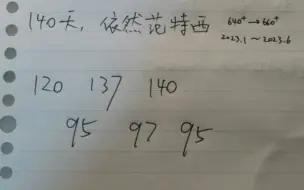 140天，依然范特西
640⁺→660⁺
2023.1～2023.6
120 137 140
95 97 95